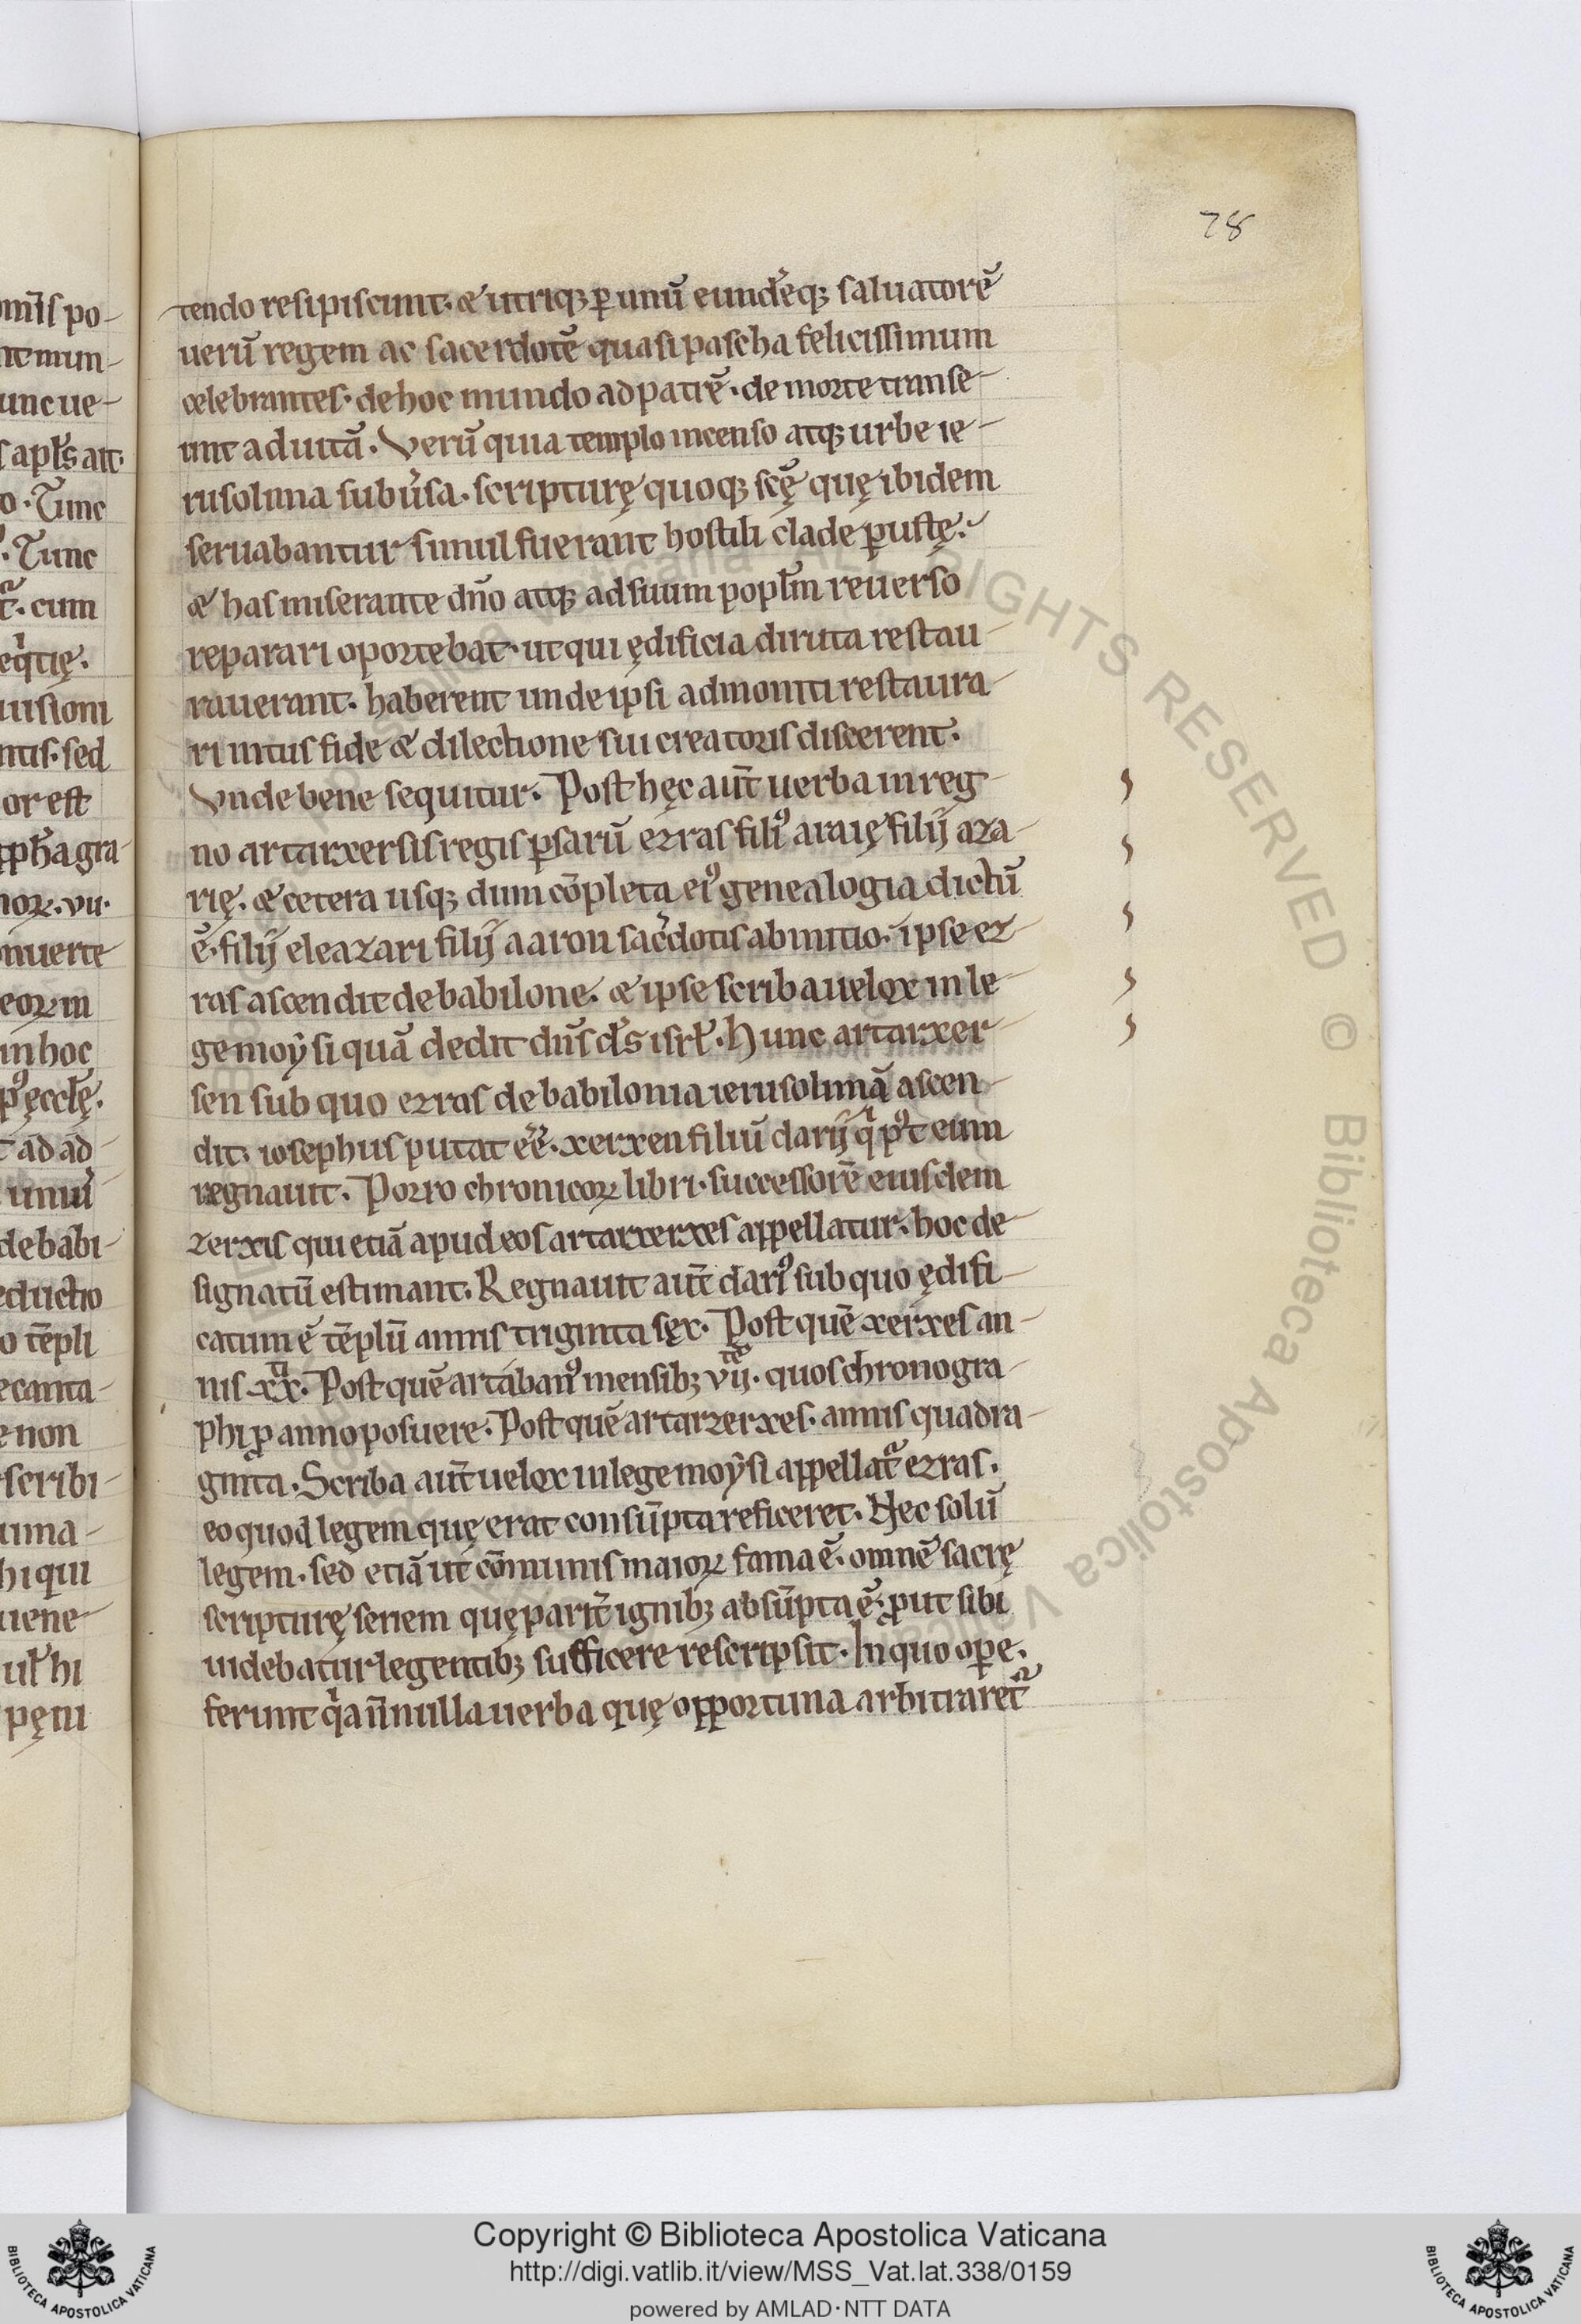 78
tendo resipiscunt. & utriq; ꝑ unū eund̄eq; saluatorē
uerū regem ac sacerdotē quasi pascha felicissimum
celebrantes. de hoc mundo ad patrē. de morte transe-
unt ad uitā. Verū quia templo incenso atq; urbe ie-
rusolima subu̓sa. scripturę quoq; scę̄ quę ibidem
seruabantur simul fuerant hostili clade ꝑustę.
& has miserante dn̄o atq; ad suum popl̄m reuerso
reparari oportebat. ut qui ędificia diruta restau-
rauerant. haberent unde ipsi admoniti restaura-
ri intus fide & dilectione sui creatoris discerent.
Vnde bene sequitur. Post hęc aut̄ uerba in reg-
no artarxersis regis ꝑsarū ezras filiꝰ araię filij aza-
rię. & cetera usq; dum cōpleta eiꝰ genealogia dictū
ē. filij eleazari filij aaron sac̓dotis ab initio. ipse ez-
ras ascendit de babilone. & ipse scriba uelox in le-
ge moẏsi quā dedit dn̄s d̄s isrl̄. Hunc artarxer-
sen sub quo ezras de babilonia ierusolimā ascen-
dit. iosephus putat eē̄. xerxen filiū darij qͥ pꝰt eum
regnauit. Porro chronicoꝝ libri. successorē eiusdem
zerxis qui etiā apud eos artarxerxes appellatur. hoc de-
signatū estimant. Regnauit aut̄ dariꝰ sub quo ędifi-
catum ē tēplū annis triginta sęx. Post quē xerxes an-
nis xx.ᵗⁱ Post quē artabanꝰ mensib; vij.ᵗᵉ quos chronogra-
phi ꝓ anno posuere. Post quē artarzerxes. annis quadra-
ginta. Scriba aut̄ uelox in lege moẏsi appellat᷑ ezras.
eo quod legem quę erat consūpta reficeret. Nec solū
legem. sed etiā ut cōmunis maioꝝ fama ē. omnē sacrę
scripturę seriem quę parit̄ ignib; absūpta ē. ꝓut sibi
uidebatur legentib; sufficere rescripsit. In quo oꝑe.
ferunt qͥa n̄nulla uerba quę opportuna arbitraret᷑
Copyright © Biblioteca Apostolica Vaticana
http://digi.vatlib.it/view/MSS_Vat.lat.338/0159
powered by AMLAD·NTT DATA